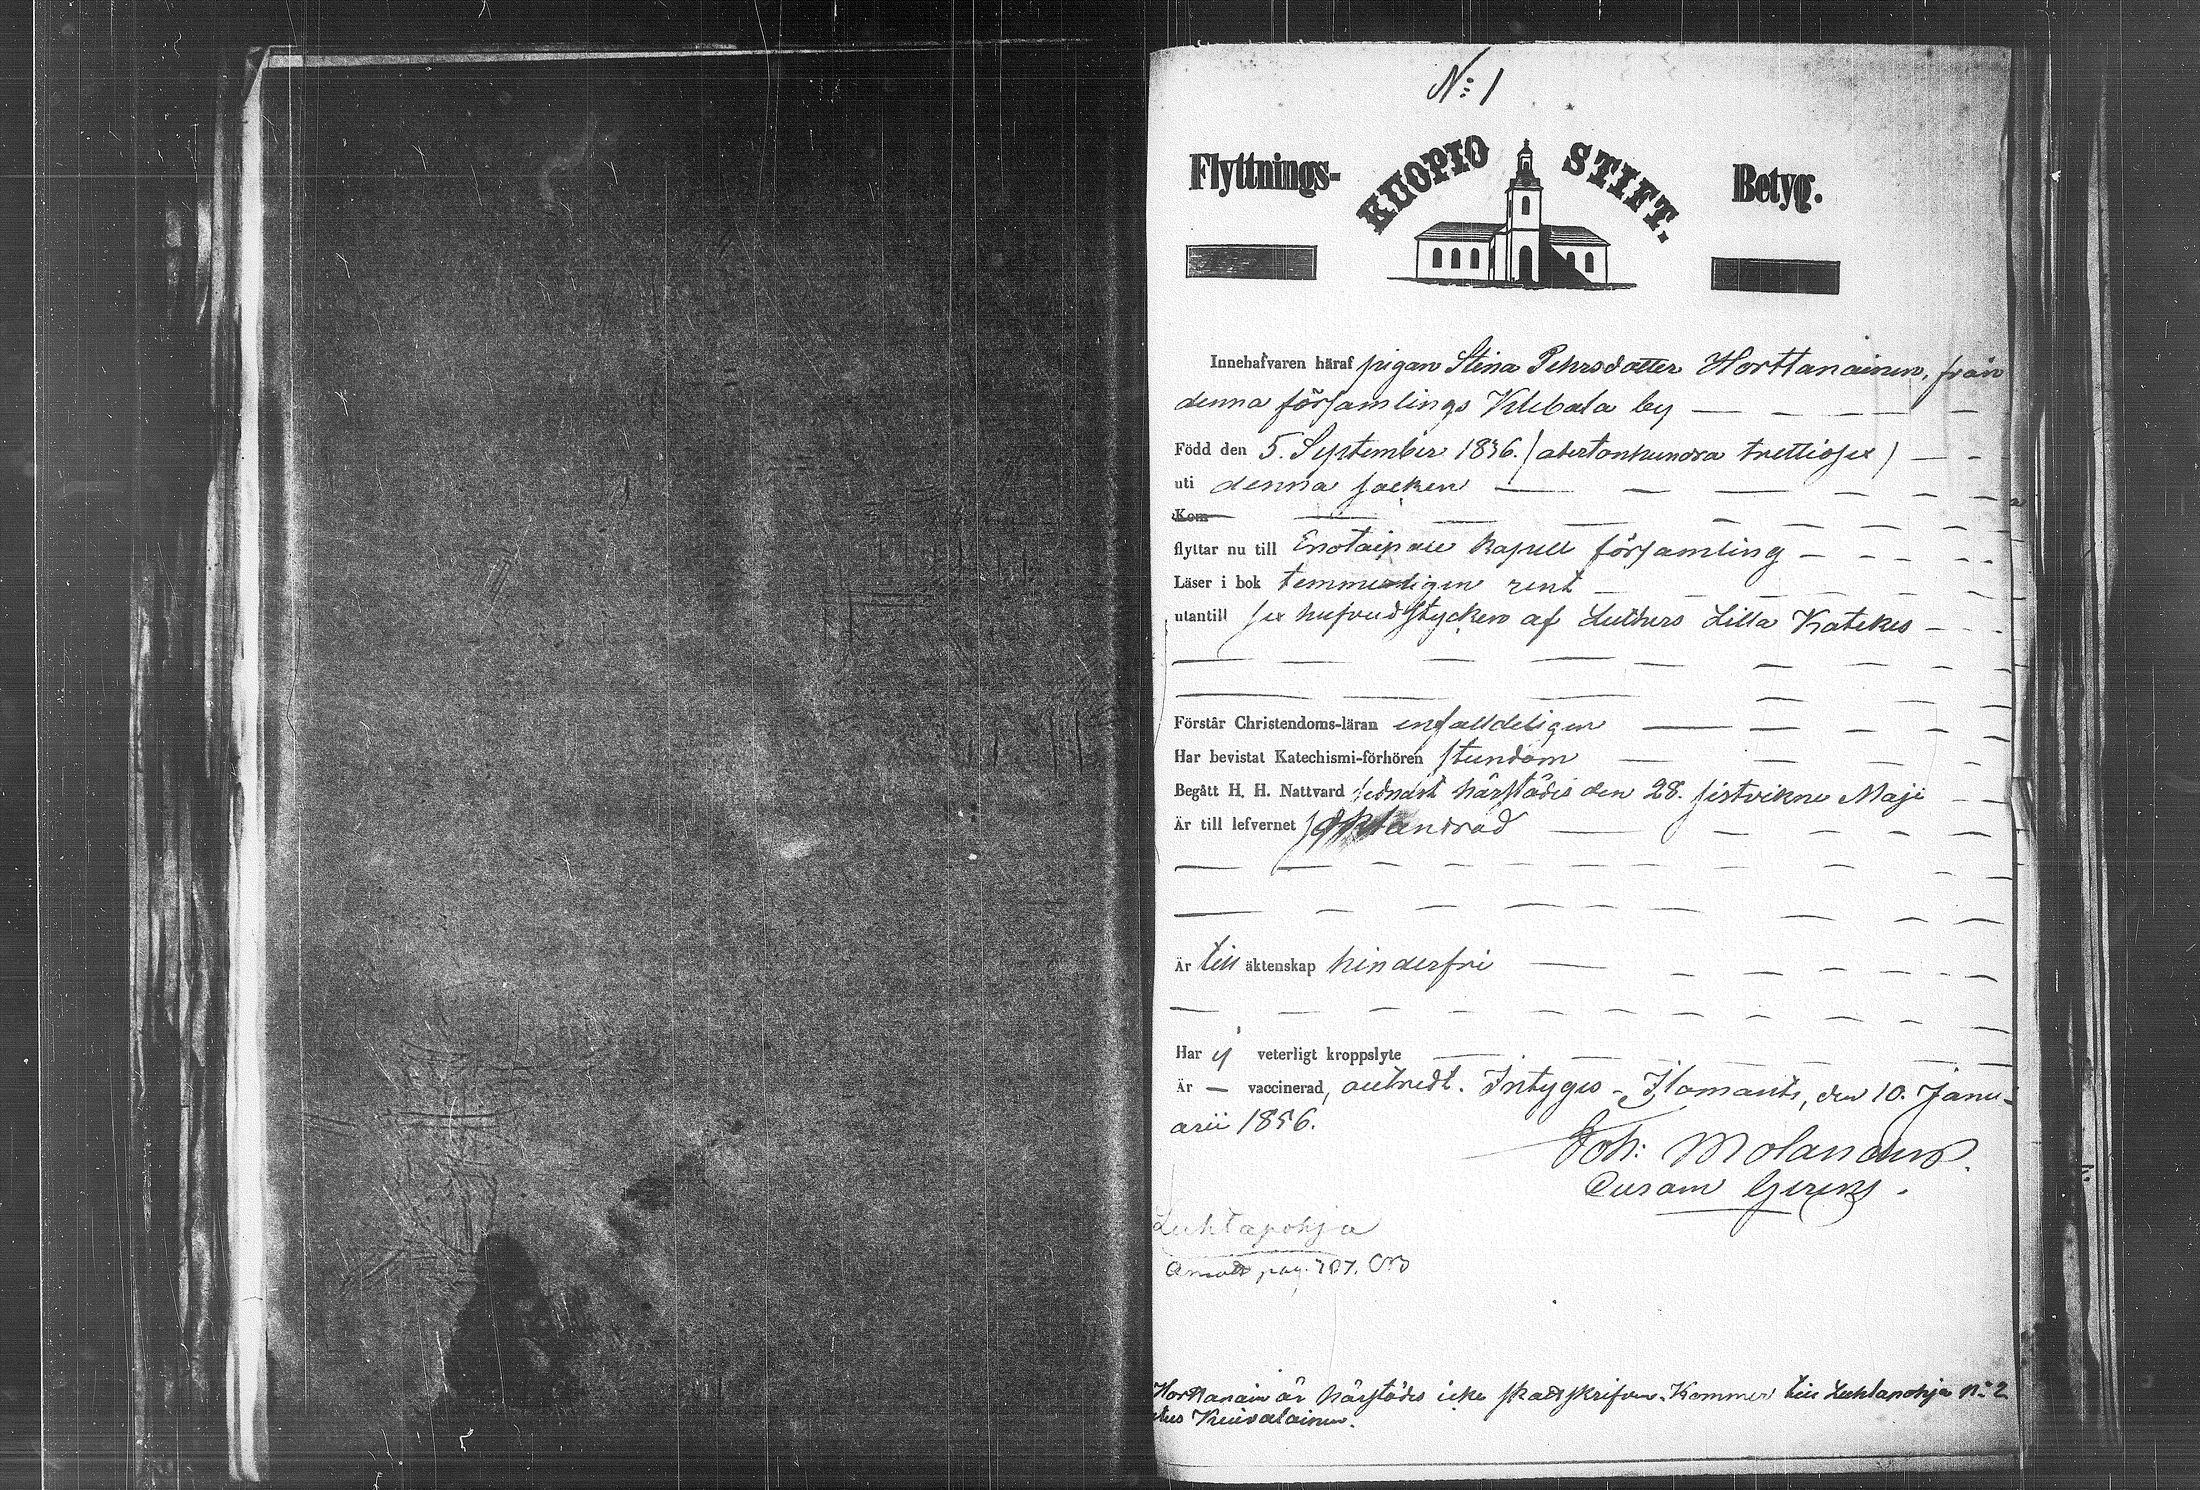 N:o 1
Flyttnings- KUOPIO STIFT. Betyg.
Innehafvaren häraf pigan Stina Pehrsdotter Horttanainen, från
denna församlings Kelebala by
Född den 5. September 1836. (adertonhundra trettiosex)
uti denna socken
Kom
flyttar nu till Enotaipale kapell församling
Läser i bok temmeligen rent
utantill sex hufvudstycken af Luthers Lilla Katekes
Förstår Christendoms-läran enfalldeligen
Har bevistat Katechismi-förhören stundom
Begått H. H. Nattvard sednast härstädes den 28. sistvikne Maji
Är till lefvernet
Är till äktenskap hinderfri
Har ej veterligt kroppslyte
Är — vaccinerad, Intygas - Ilomants, den 10. Janu-
arii 1856.
Joh: Molander.
Curam Gerens.
Luhtapohja
pag. 707.
är härstädes icke skattskrifven. Kommer till Luhtapohja N:o 2